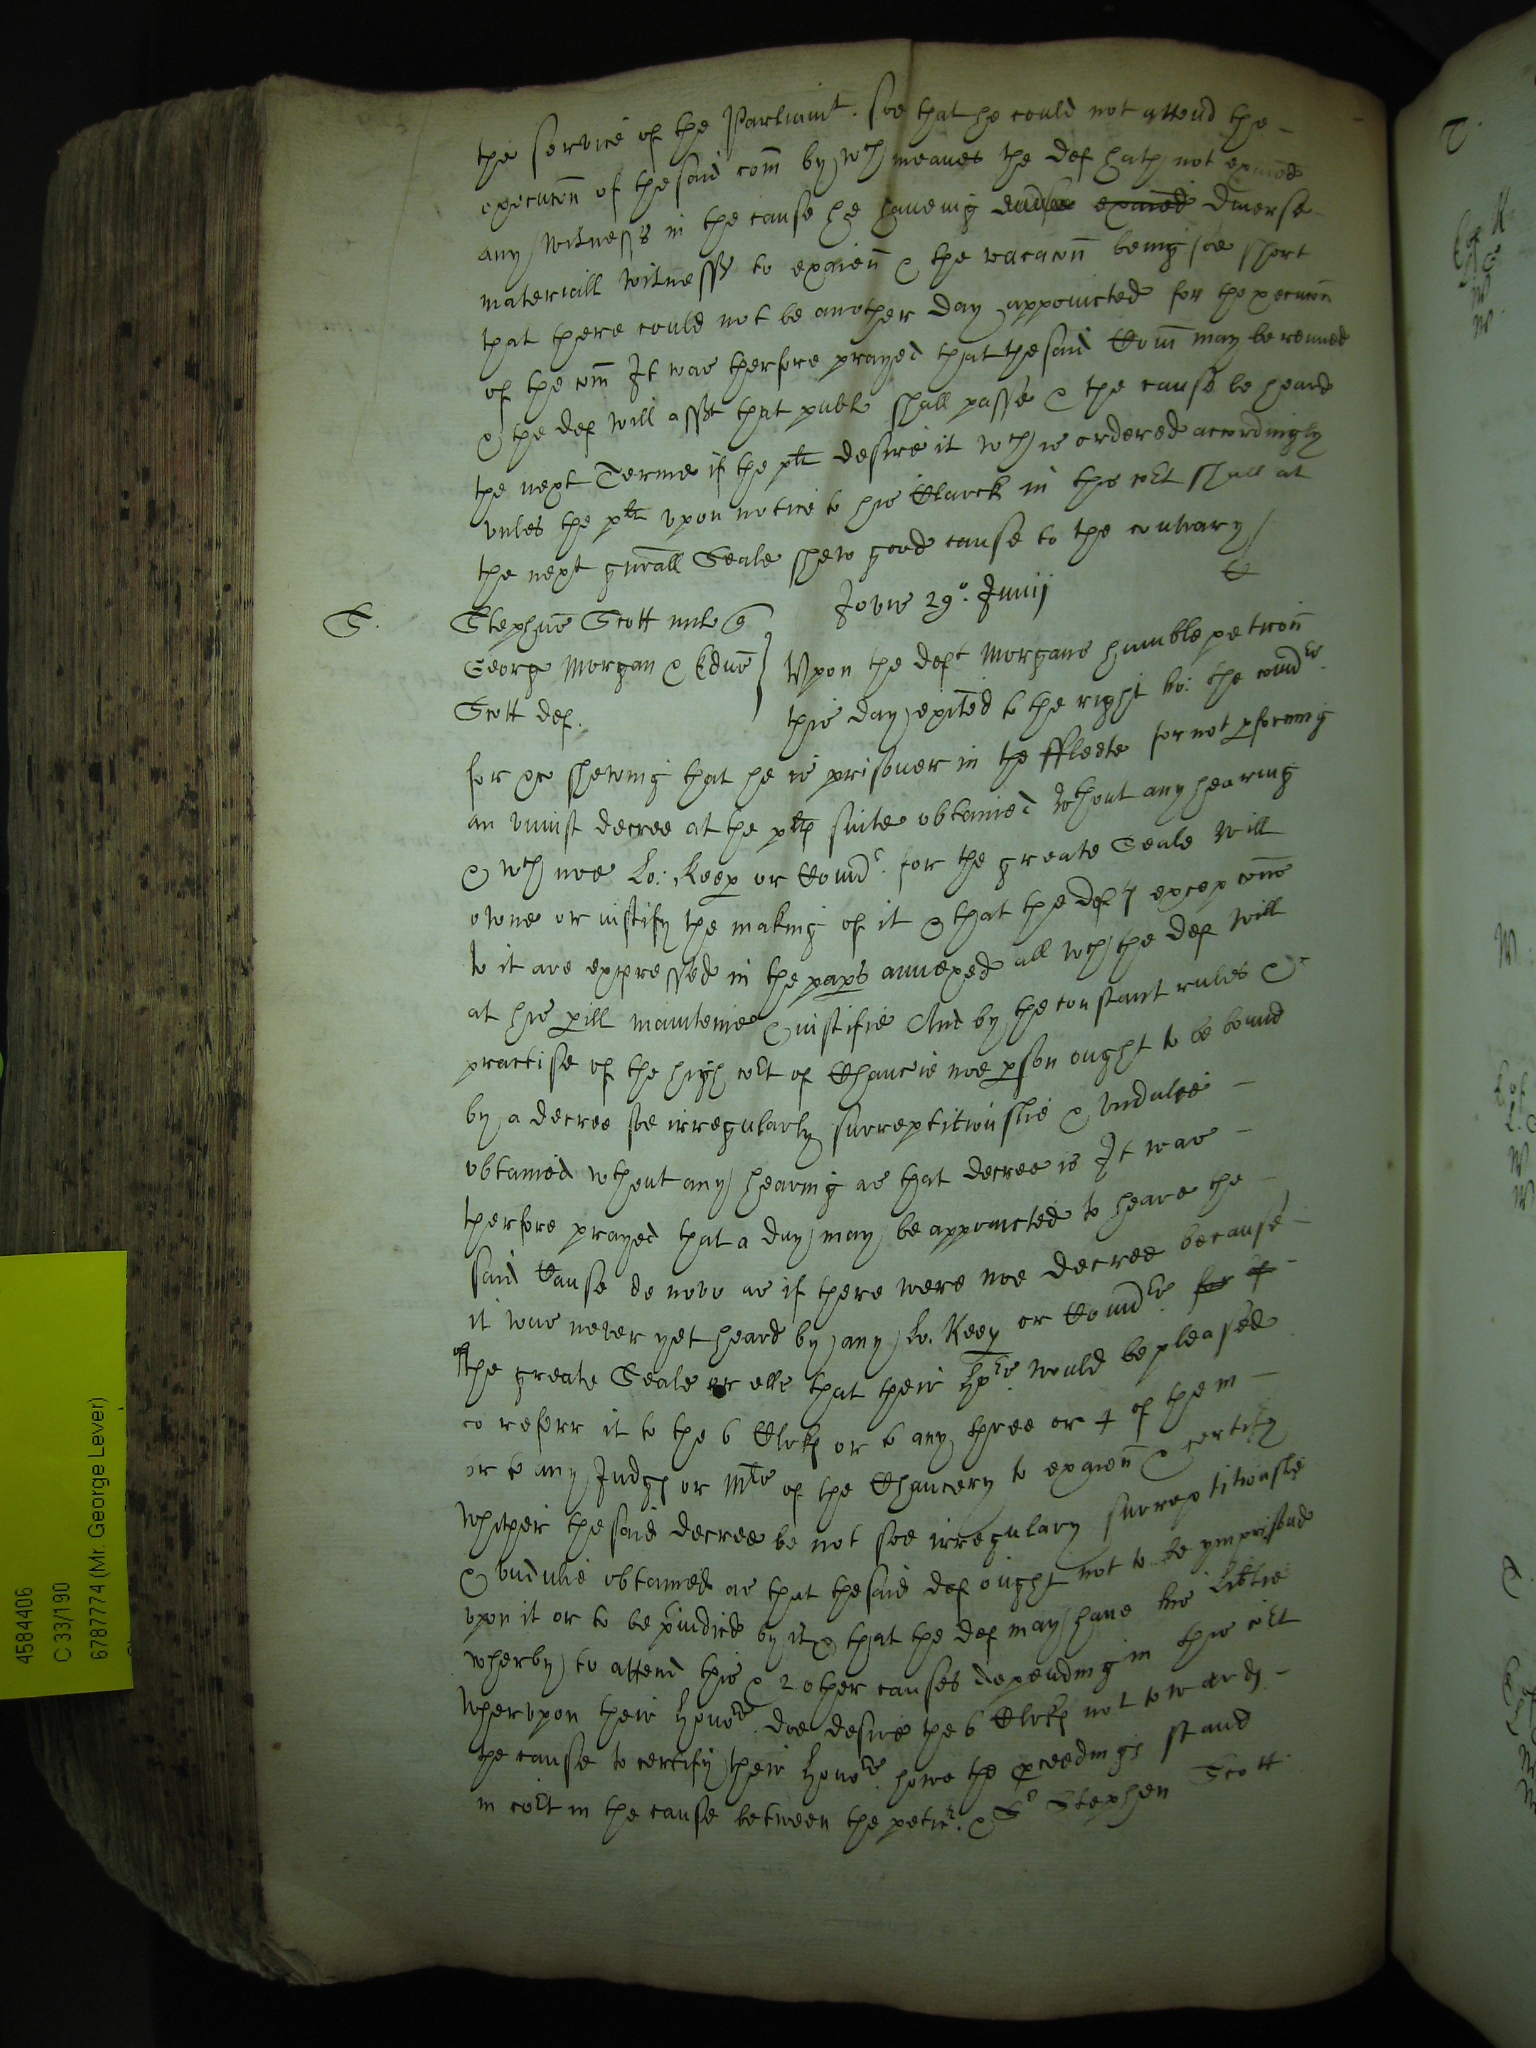 the service of the Parliamt. soe that he could not attend the
execucon of the said com by wch meanes the def hath not exained
any witnesses in the cause he haveing diverse
materiall witnesses to exaien & the vacacon being soe short
that there could not be another day appoincted for thexecucon
of the com It was therfore prayed that the said Com may be renued
& the def will assent that publ shall passe & the cause be heard
the next Terme if the plt desire it wch is ordered accordingly
unles the plt upon notice to his Clarck in the cort shall at
the next gnrall Seale shew good cause to the contrary
S. Stephno Scott mil q
Jovis 29o. Junij
Georg Morgan & Edro
Scott def.
Upon the deft Morgans humble peticon
this day exited to the right ho: the comrs.
for &c shewing that he is prisoner in the ffleete for not pforming
an uniust decree at the plts suite obtained wthout any hearing
& wch noe Lo: Keep or Comr. for the greate Seale will
owne or iustify the making of it & that the defts excepcons
to it are expressed in the paps annexed all wch the def will
at his pill mainteine & iustifie And by the constant rules &
practise of the high cort of Chancie noe pson ought to be bound
by a decree soe irregularly surreptitiouslie & undulee
obtained wthout any hearing as that decree is It was
therfore prayed that a day may be appoincted to heare the
said Cause de novo as if there were noe decree because
it was never yet heard by any Lo. Keep or Comrs. for of
of the greate Seale or else that their Lpps. would be pleased
to referr it to the 6 Clrks or to any three or 4 of them
or to any Judges or Mrs of the Chancery to exaien & certify
whither the said decree be not soe irregulary surreptitiouslie
& undulie obtained as that the said def ought not to be ymprisond
upon it or to be piudicd by it & that the def may have his libtie
wherby to attend this & 2 other causes depending in this cort
Wherupon their honors. doe desire the 6 Clrks not towards
the cause to certify their honors. howe the pceedings stand
in cort in the cause between the petr. & Sr Stephen Scott
4584406
C 33/190
6787774 (Mr. George Lever)